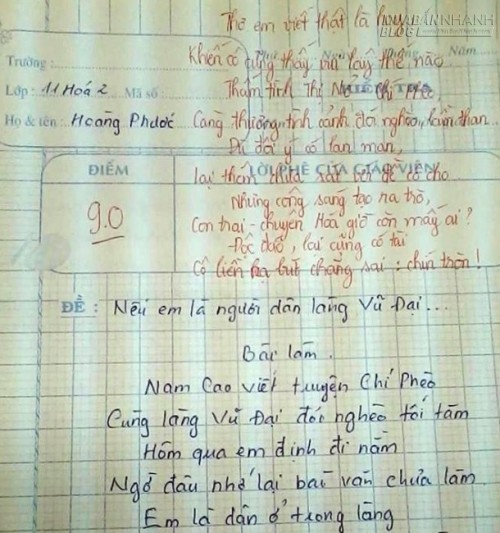 Thơ em viết thật là hay
BLOG BÁNHNHANH
Khiến cô cũng thấy mê say thế nào
Trường:
Năm
Lớp: 11 Hoá 2 Mã số:
Thấm tình Thị Nở Chí Phèo
Họ & tên: Hoàng Phước
Càng thương tình cảnh đói nghèo, lầm than
Dù đôi ý có lan man,
ĐIỂM
LỜI PHÊ CỦA GIÁO VIÊN
lại thêm chưa sát với đề cô cho
Nhưng công sáng tạo ra trò,
9.0
Con trai - chuyên Hoá giờ còn mấy ai?
Độc đáo, lại cũng có tài
Cô liền hạ bút chẳng sai: chín tròn!
ĐỀ: Nếu em là người dân làng Vũ Đại...
Bài làm.
Nam Cao viết truyện Chí Phèo
Cùng làng Vũ Đại đói nghèo tối tăm
Hôm qua em định đi nằm
Ngờ đâu nhớ lại bài văn chưa làm
Em là dân ở trong làng